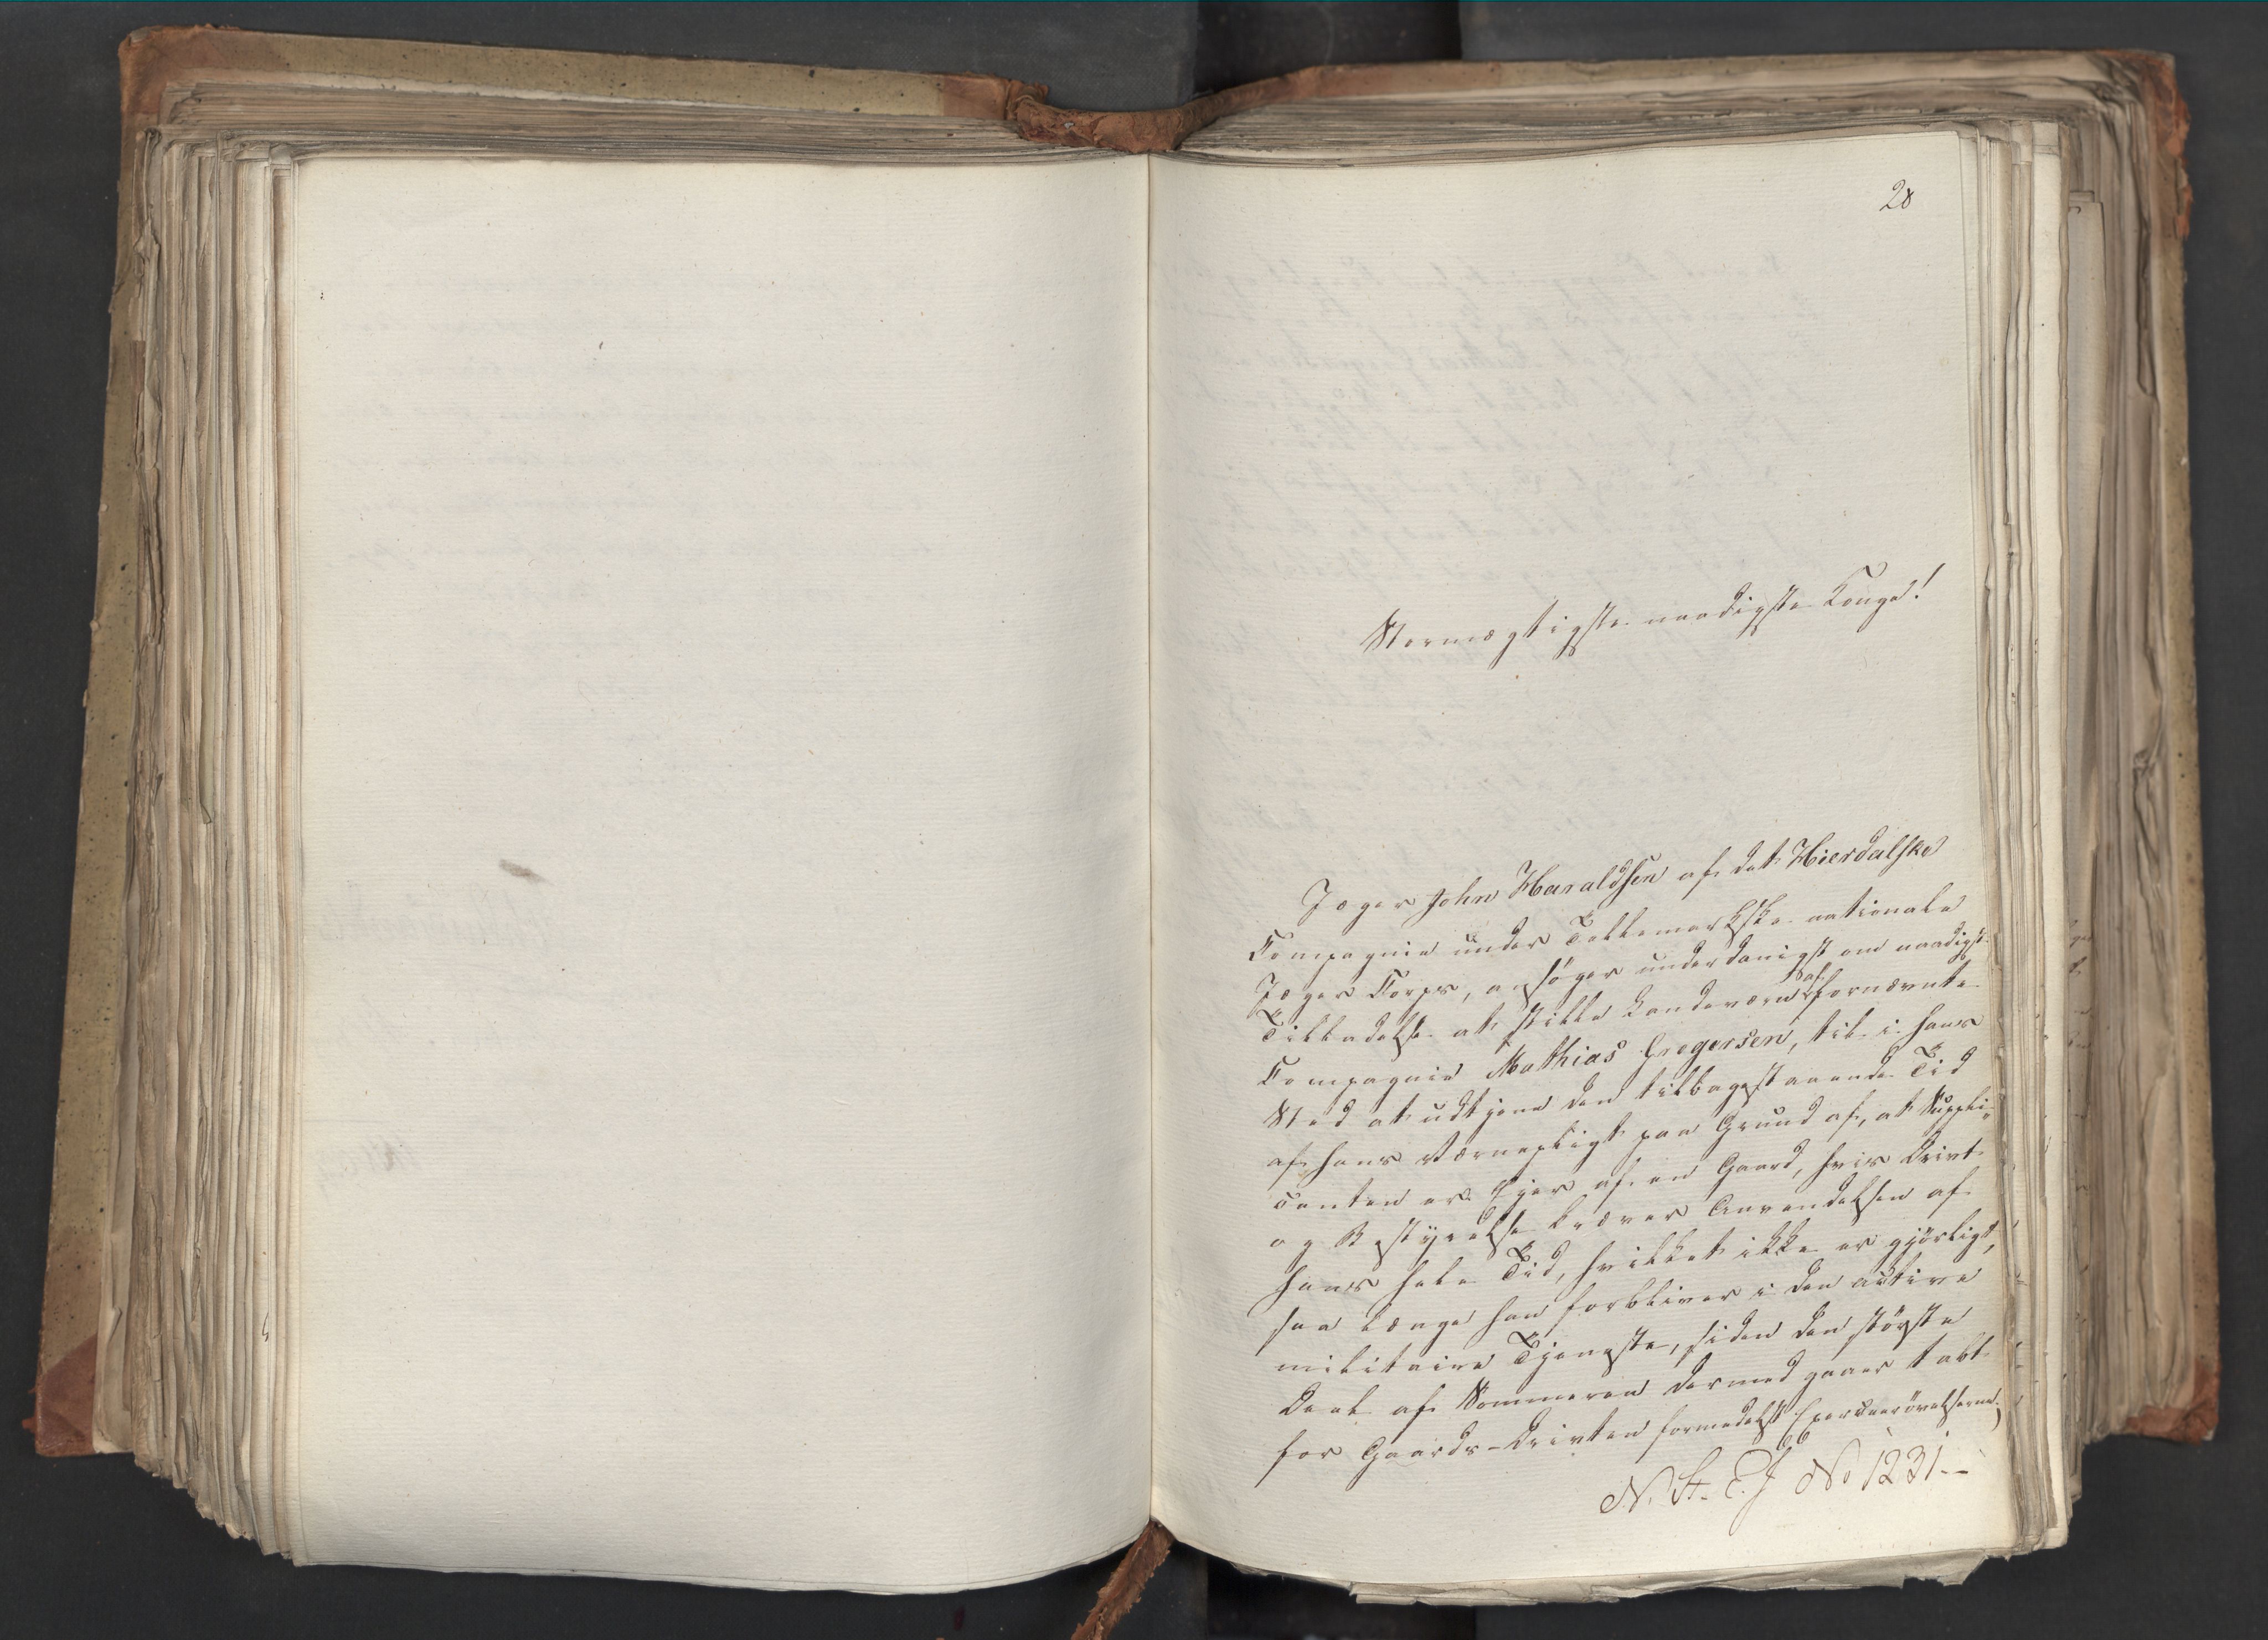 28
Stormægtigste naadigste Konge!
Jæger John Haraldsen af det Hierdalske
Compagnie under Tellemarkske nationale
Jæger Corps, ansöger underdanigst om naadigst
Tilladelse at stille Landeværn af fornævnte
Compagnie Mathias Gregersen, til i hans
Sted at udtjene den tilbagestaaende Tid
af hans Værnepligt paa Grund af, at Suppli-
canten er Ejer af en Gaard, hvis Drivt
og Bestyrelse kræver Anvendelsen af
hans hele Tid, hvilket ikke er gjörligt,
saa længe han forbliver i den active
militaire Tjeneste, siden den störste
Deel af Sommeren dermed gaaer tabt
for Gaards-Drivten formedelst Exerceerövelserne.
N. St. E. J No 1231--